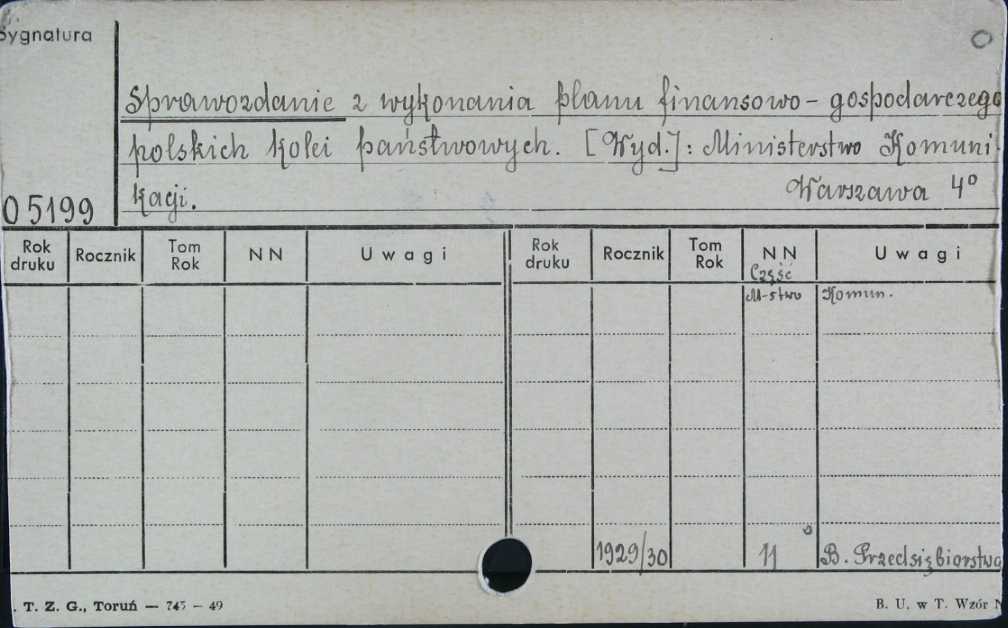 Sygnatura
Sprawozdanie z wykonania planu finansowo-gospodarczego
polskich kolei państwowych. [Wyd.]: Ministerstwo Komuni-
kacji. Warszawa 4°
05199
Rok druku Rocznik Tom Rok NN Uwagi Rok druku Rocznik Tom Rok NN Uwagi
Część
M-stwo Komun.
1929/30 B. Przedsiębiorstwo
. T. Z. G., Toruń — 745 — 49 B. U. w T. Wzór N